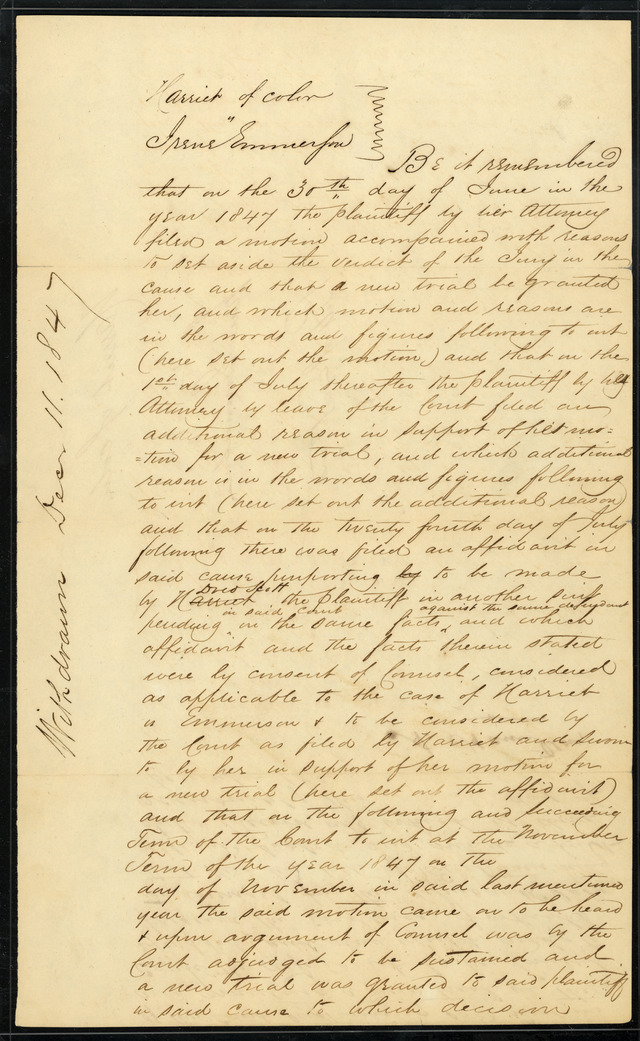 Harriet of color
"
Irene Emmerson
Be it remembered
that on the 30th day of June in the
year 1847 the plaintiff by her Attorney
filed a motion accompanied with reasons
to set aside the verdict of the Jury in the
cause and that a new trial be granted
her, and which motion and reasons are
in the words and figures following to wit
(here set out the motion) and that on the
1st day of July thereafter the plaintiff by her
Attorney by leave of the Court filed an
additional reason in support of her mo=
=tion for a new trial, and which additional
reason is in the words and figures following
to wit (here set out the additional reason)
and that on the twenty fourth day of July
following there was filed an affidavit in
said cause purporting by to be made
Dred Scott
by Harriet the plaintiff in another suit
in said Court against the same defendant
pending on the same facts, and which
affidavit and the facts therein stated
were by consent of Counsel, considered
as applicable to the case of Harriet
vs Emmerson & to be considered by
the Court as filed by Harriet and sworn
to by her in support of her motion for
a new trial (here set out the affidavit)
and that on the following and succeeding
Term of the Court to wit at the November
Term of the year 1847 on the
day of November in said last mentioned
year the said motion came on to be heard
& upon argument of Counsel was by the
Court adjudged to be sustained and
a new trial was granted to said plaintiff
in said cause to which decision
Withdrawn Decr 11. 1847